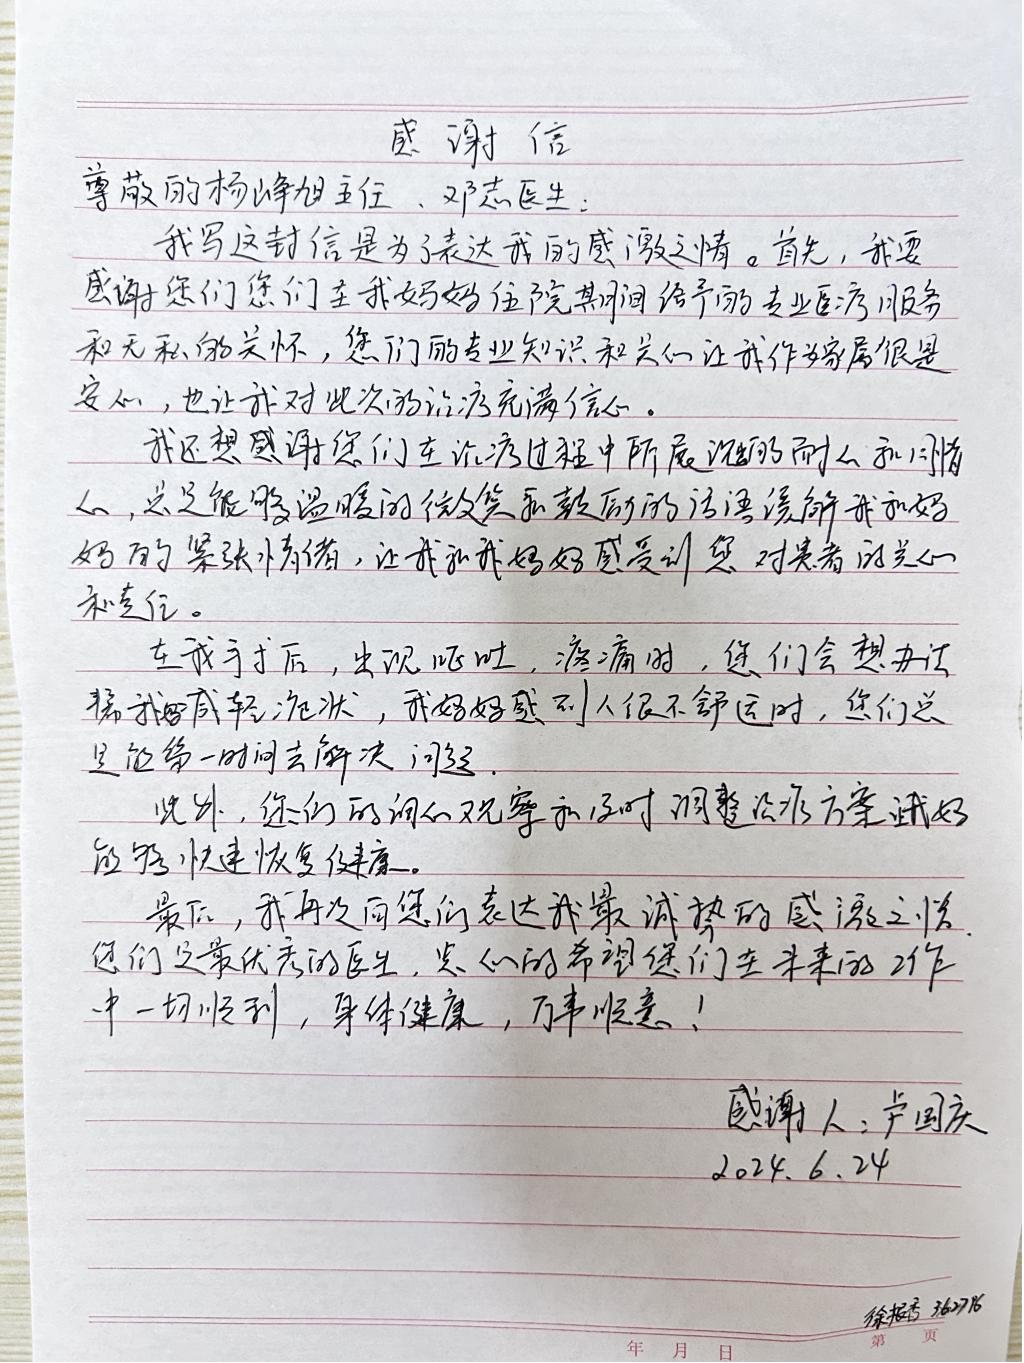 感谢信
尊敬的杨峰旭主任、邓志医生:
我写这封信是为了表达我的感激之情。首先,我要
感谢您们您们在我妈妈住院期间给予的专业医疗服务
和无私的关怀,您们的专业知识和关心让我作为家属很是
安心,也让我对此次的治疗充满信心。
我还想感谢您们在治疗过程中所展现出的耐心和同情
心,总是能够温暖的微笑和鼓励的话语缓解我和妈
妈的紧张情绪,让我和我妈妈感受到您对患者的关心
和责任。
在我手术后,出现呕吐,疼痛时,您们会想办法
我妈减轻症状,我妈妈感到人很不舒适时,您们总
是能第一时间去解决问题.
此外,您们的细心观察和及时调整治疗方案让我妈
能够快速恢复健康。
最后,我再次向您们表达我最诚挚的感激之情.
您们是最优秀的医生,衷心的希望您们在未来的工作
中一切顺利,身体健康,万事顺意!
感谢人:卢国庆
2024.6.24
徐振香 362796
第 页
年 月 日